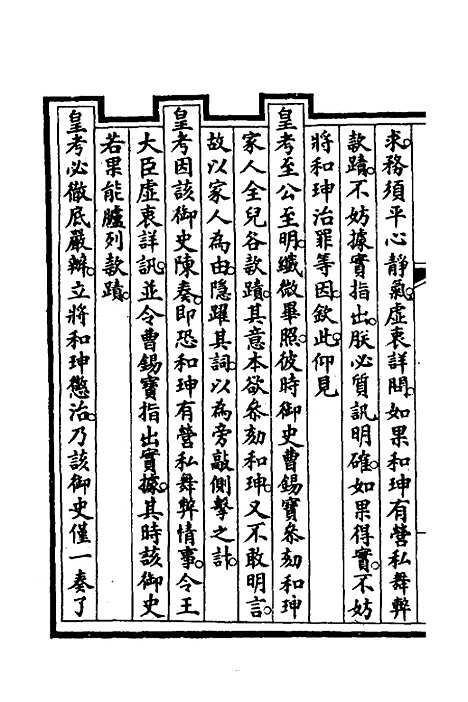 求務須平心靜氣虛衷詳問如果和珅有營私舞弊
款蹟不妨據實指出朕必質訊明確如果得實不妨
將和珅治罪等因欽此仰見
皇考至公至明纖微畢照彼時御史曹錫寶叅劾和珅
家人全兒各款蹟其意本欲叅劾和珅又不敢明言
故以家人為由隐躍其詞以為旁敲側擊之計
皇考因該御史陳奏即恐和珅有營私舞弊情事令王
大臣虛衷詳訊並令曹錫寶指出實據其時該御史
若果能臚列款蹟
皇考必徹底嚴辦立將和珅懲治乃該御史僅一奏了